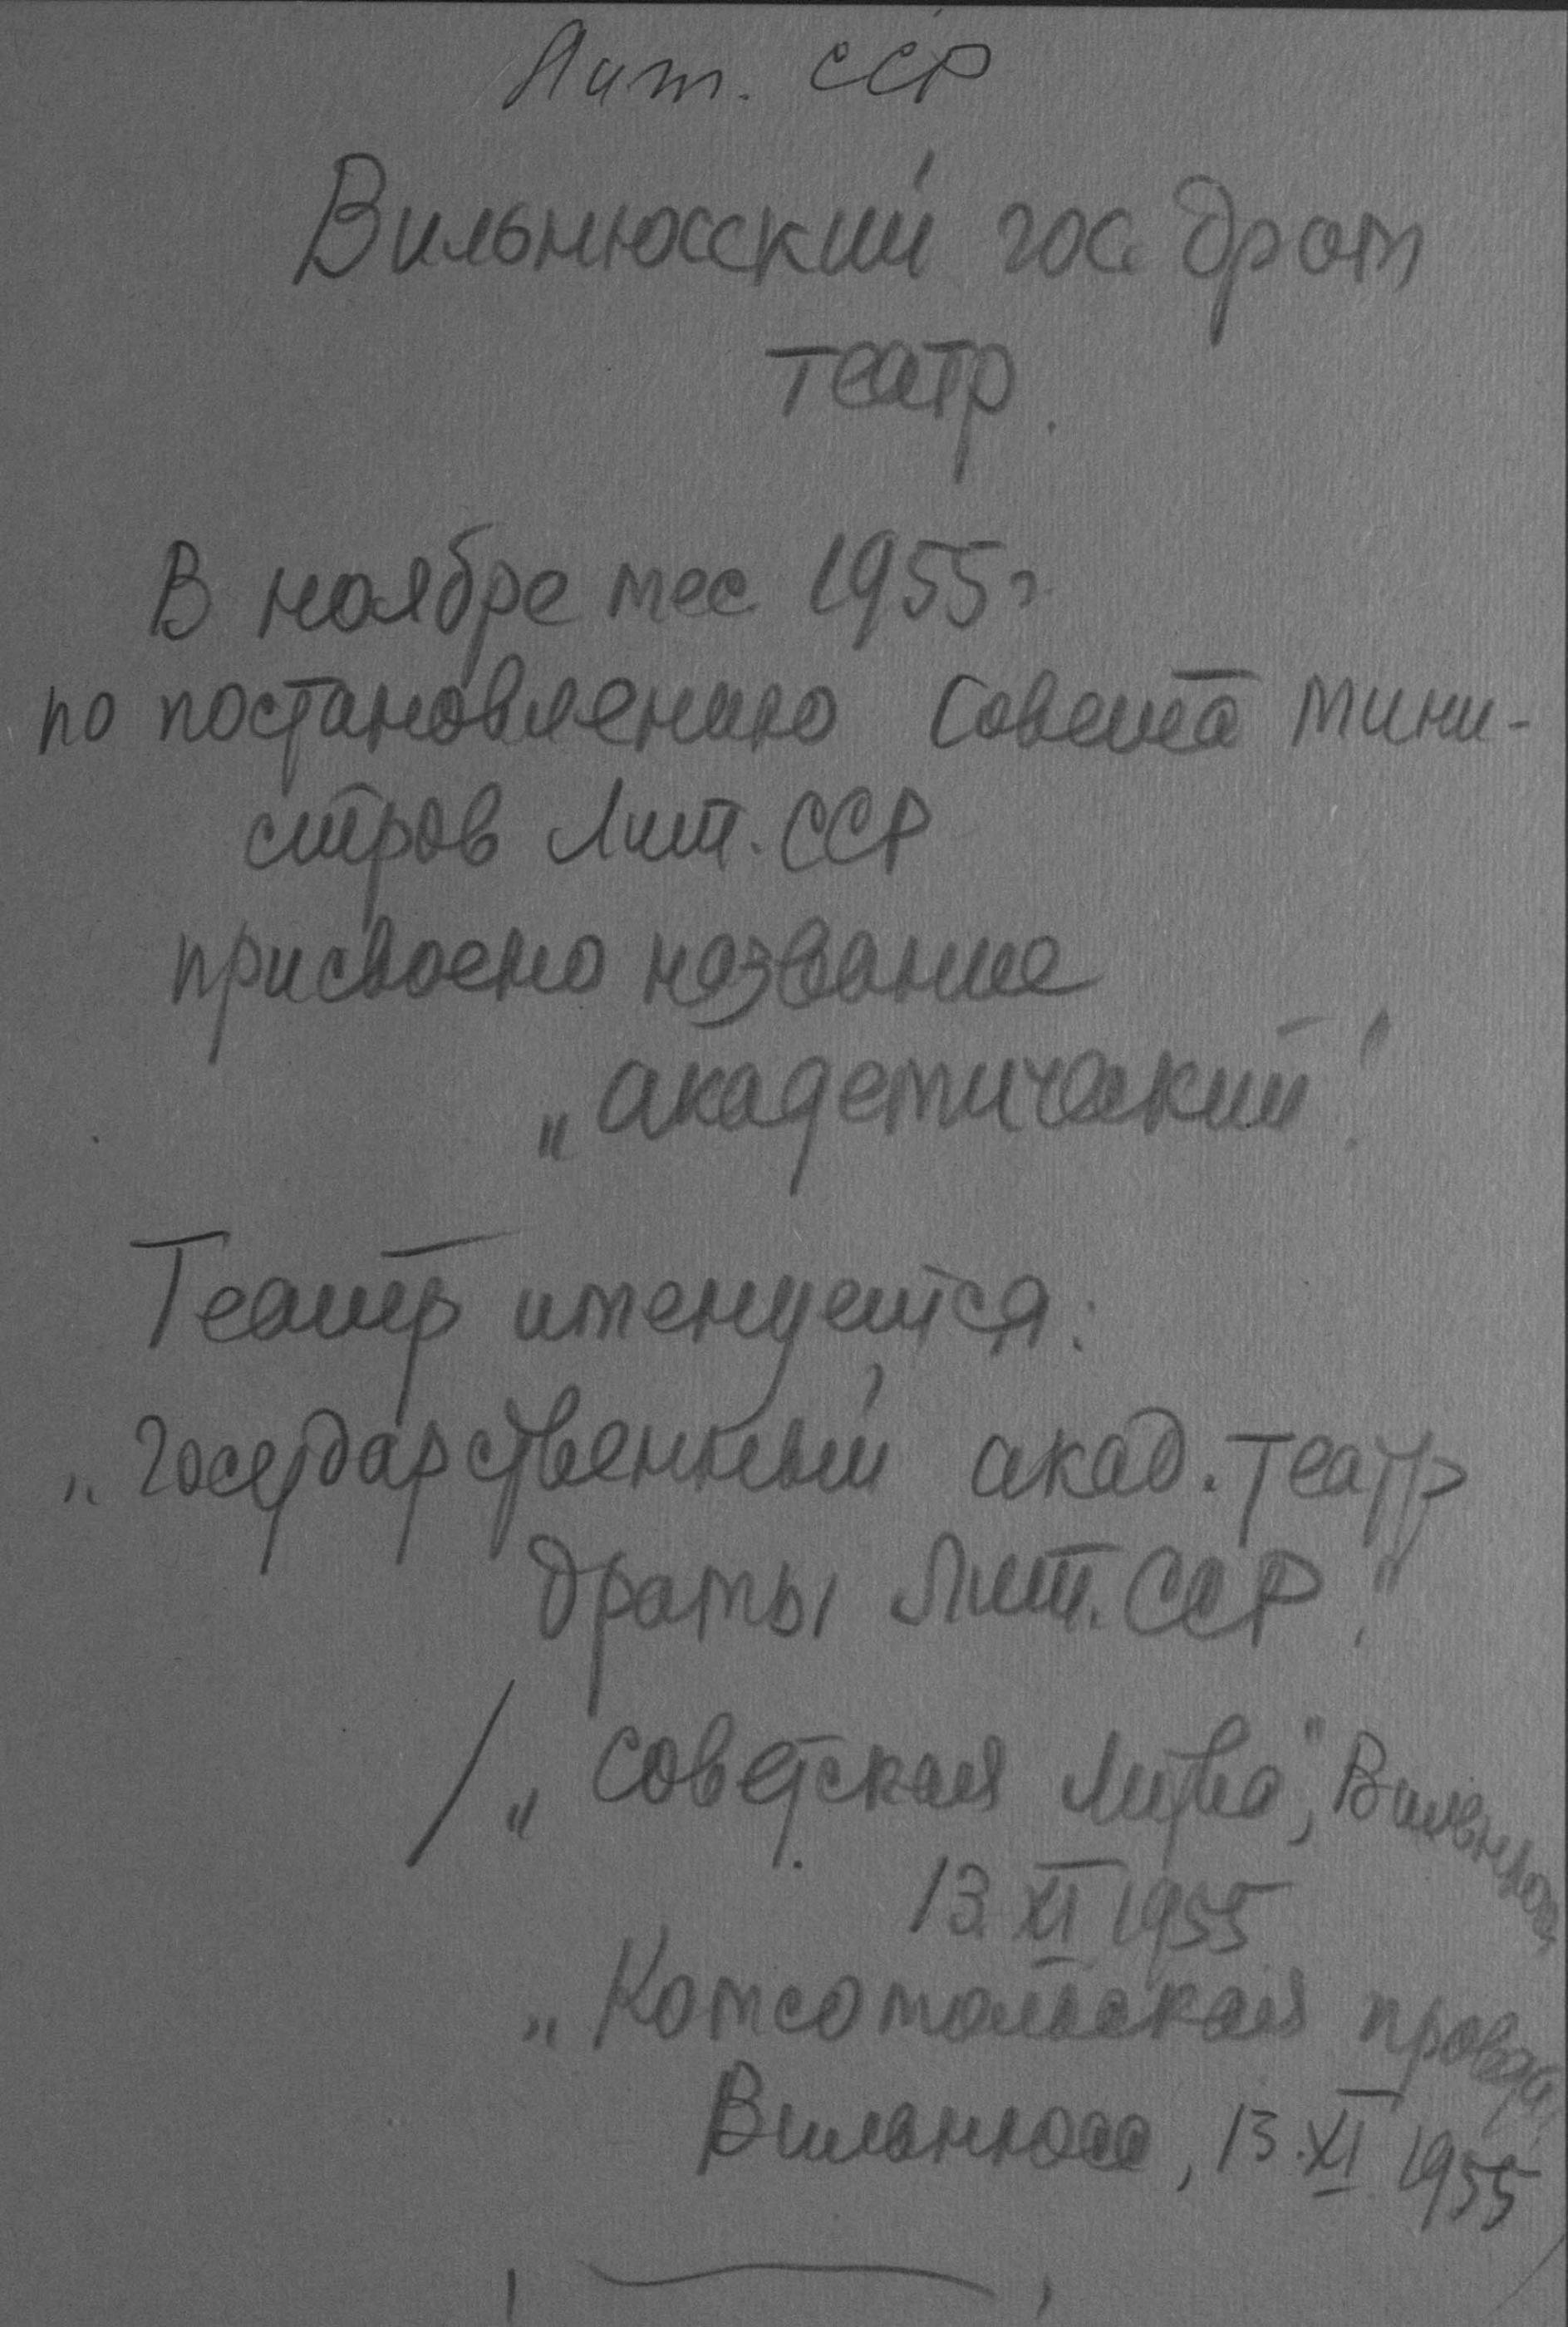 Лит. ССР
Вильнюсский гос. драм
театр.
В ноябре мес 1955 г
по постановлению Совета мини-
стров Лит. ССР
присвоено название
„академический".
Театр именуется:
„Государственный акад. театр
драмы Лит. ССР".
/„Советская Литва", Вильнюсс
13 XI 1955
„Комсомольская правда
Вильнюсс, 13. XI 1955/